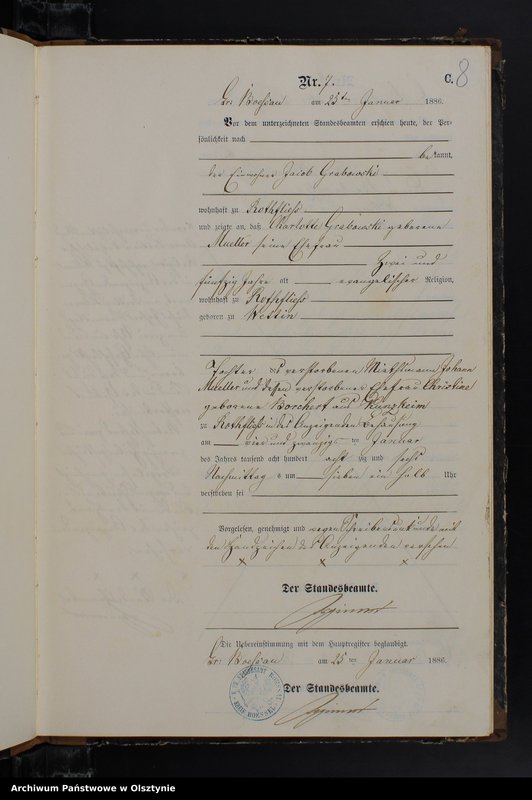 Nr. 7.
C. 8
Gr: Boessau am 25ten Januar 1886.
Vor dem unterzeichneten Standesbeamten erschien heute, der Persönlichkeit nach
bekannt,
der Einwohner Jacob Grabowski
wohnhaft zu Rothfließ
und zeigte an, daß Charlotte Grabowski geborene
Mueller seine Ehefrau
zwei und
fünfzig Jahre alt evangelischer Religion,
wohnhaft zu Rothfließ
geboren zu
Tochter des verstorbenen Johann
Mueller und dessen verstorbener Ehefrau Christine
geborene Borchert aus
zu Rothfließ in des Anzeigenden Behausung
am vier und zwanzigsten Januar
des Jahres tausend acht hundert achtzig und sechs
Nachmittags um sieben ein halb Uhr
verstorben sei
Vorgelesen, genehmigt und wegen Schreibensunkunde mit
den Handzeichen des Anzeigenden versehen
x x x
Der Standesbeamte.
Die Uebereinstimmung mit dem Hauptregister beglaubigt.
Gr: Boessau am 25ten Januar 1886.
Der Standesbeamte.
Archiwum Państwowe w Olsztynie